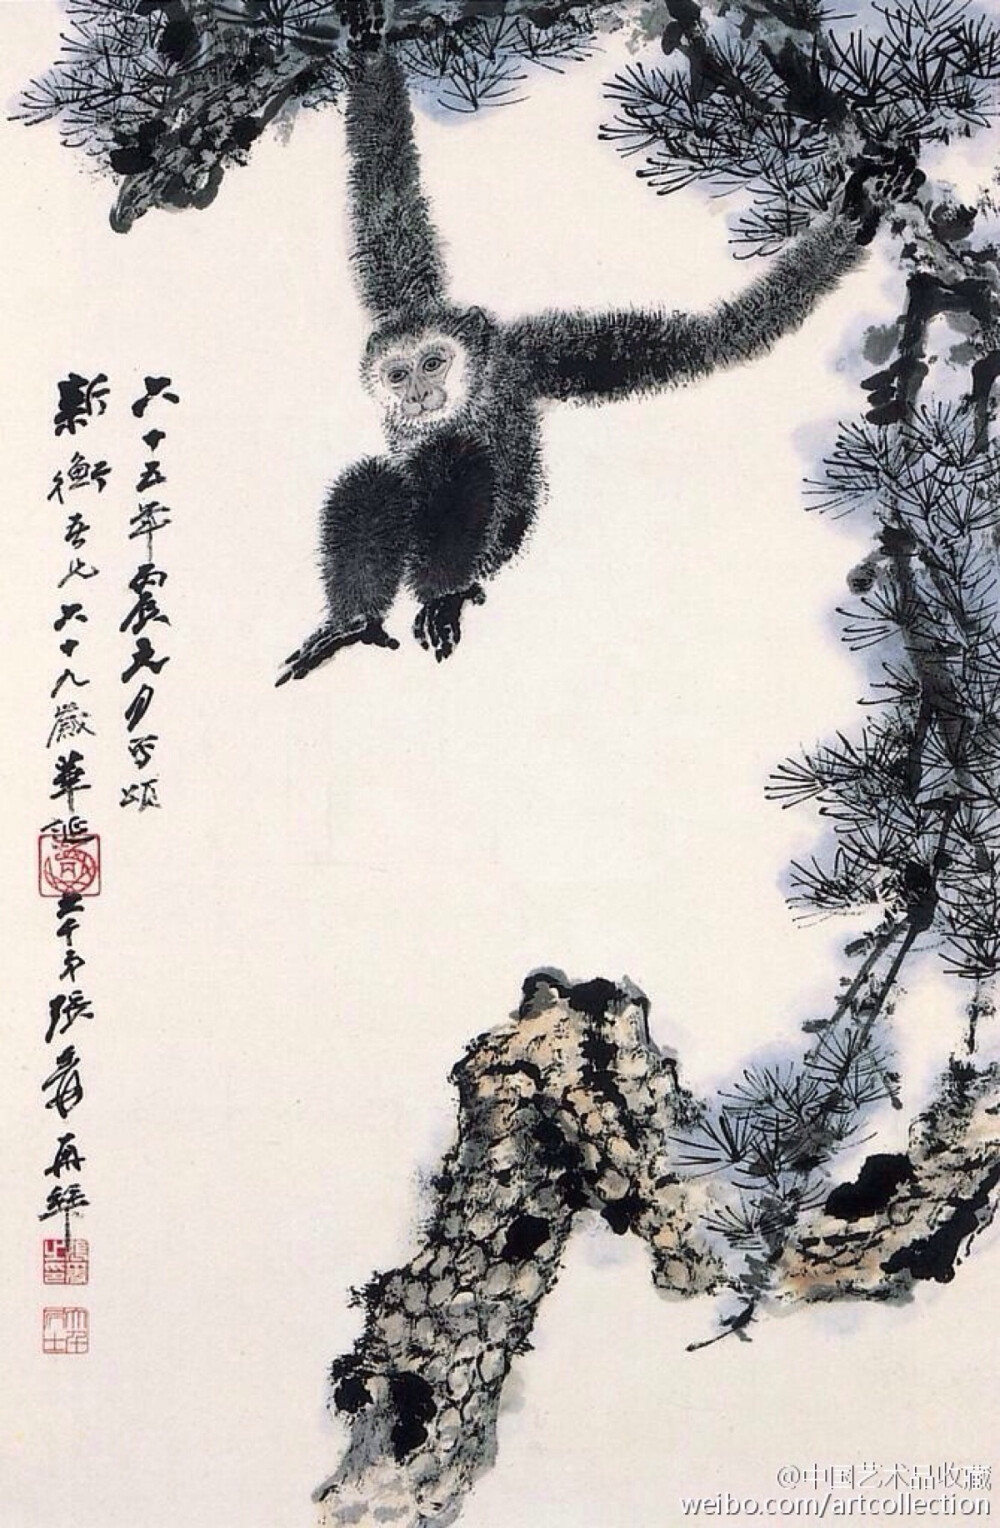 六十五年丙辰元月写頌
新衡吾兄六十九歲華誕 大千弟張爰再拜
張爰之印
大千居士
@中国艺术品收藏
weibo.com/artcollection